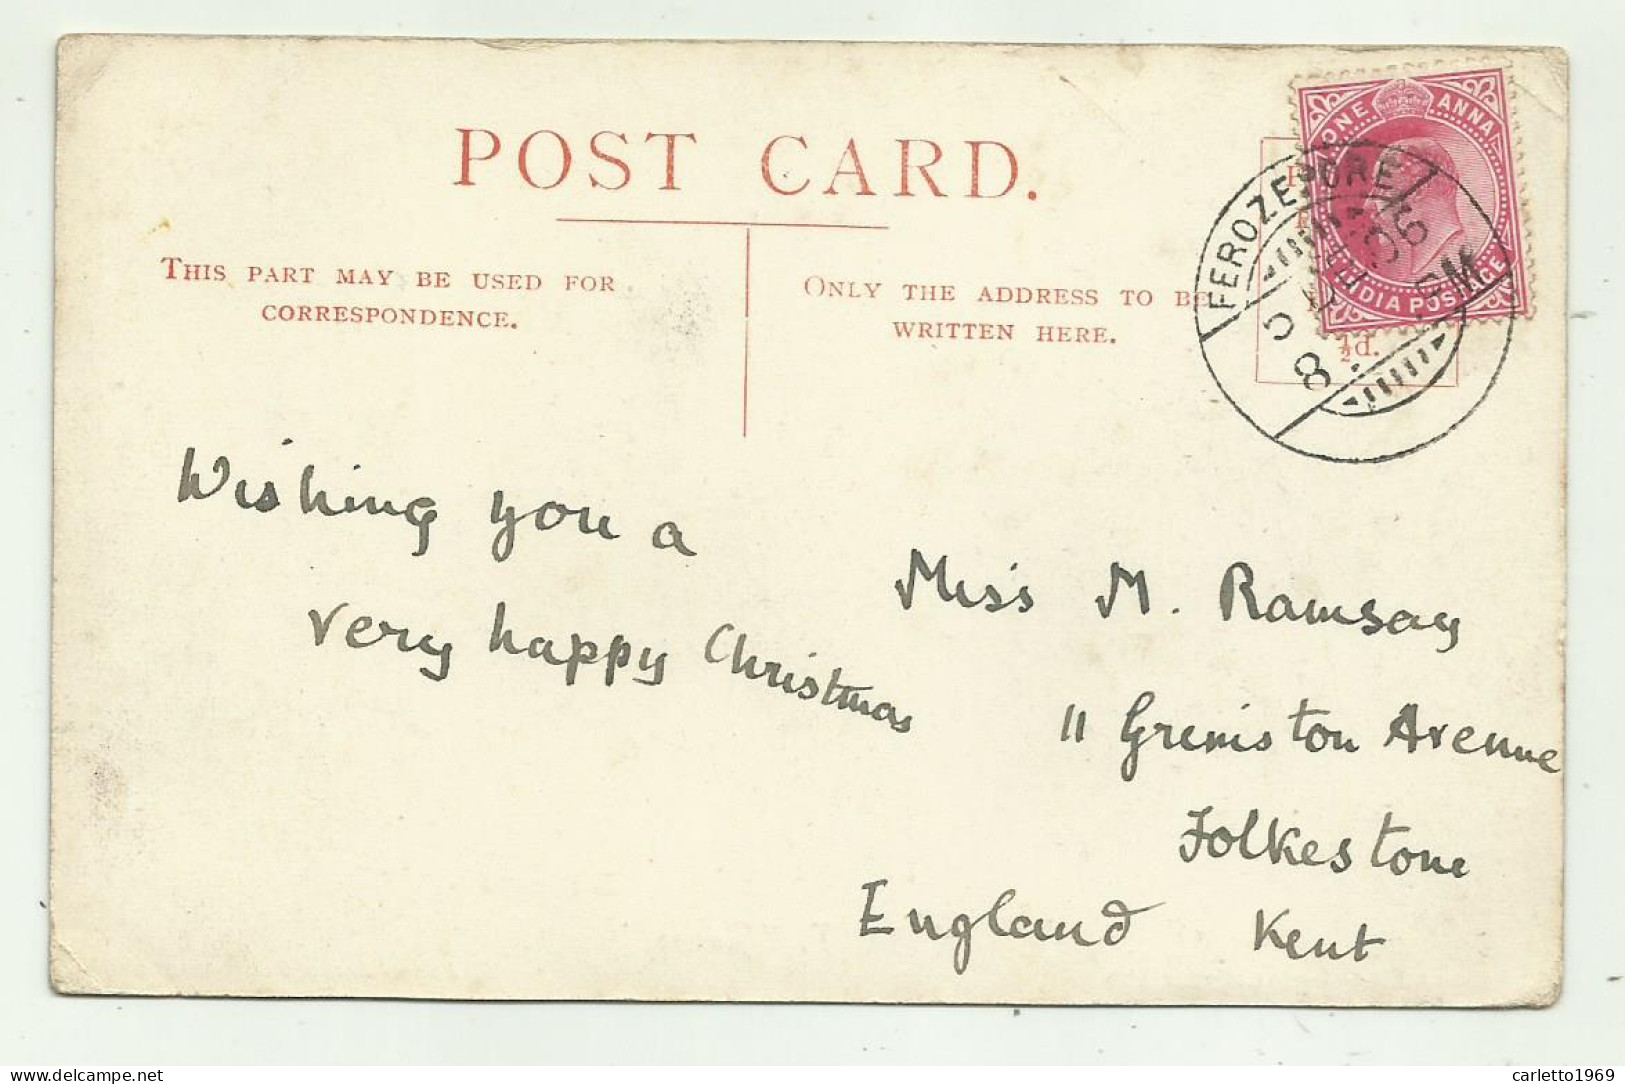 POST CARD.
THIS PART MAY BE USED FOR
CORRESPONDENCE.
ONLY THE ADDRESS TO BE
WRITTEN HERE.
ONE ANNA
INDIA POSTAGE
FEROZEPORE
½d.
Wishing you a
very happy Christmas
Miss M. Ramsay
11 Grimston Avenue
Folkestone
England Kent
carletto1969